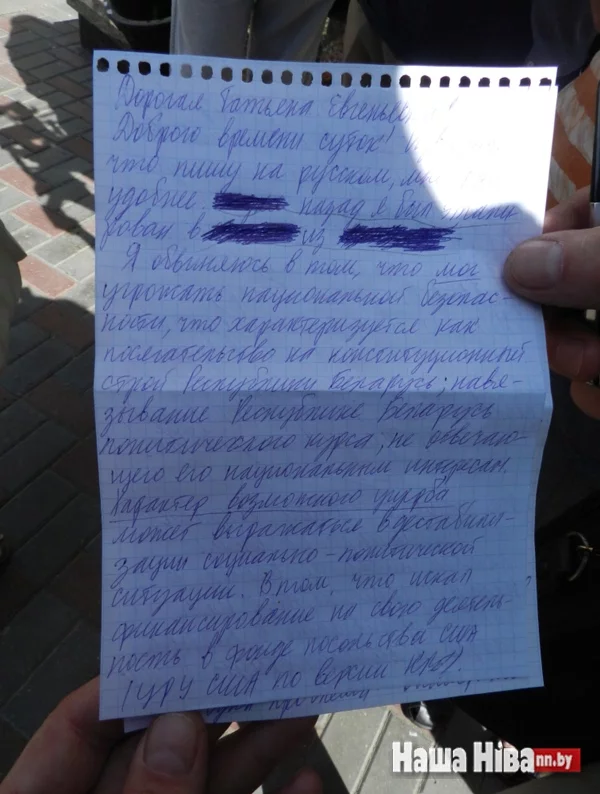 Дорогая Татьяна Евгеньевна!
Доброго времени суток!
что пишу на русском,
удобнее. назад я был этапи
рован в из
Я обвиняюсь в том, что мог
угрожать национальной безопас-
ности, что характеризуется как
посягательство на конституционный
строй Республики Беларусь; навя-
зывание Республике Беларусь
политического курса, не отвечаю-
щего его национальным интересам.
Характер возможного ущерба
может выражаться в дестабили-
зации социально-политической
ситуации. В том, что искал
финансирование на свою деятель-
ность в фонде посольства США
(ЦРУ США по версии КГБ).
Наша Ніва nn.by